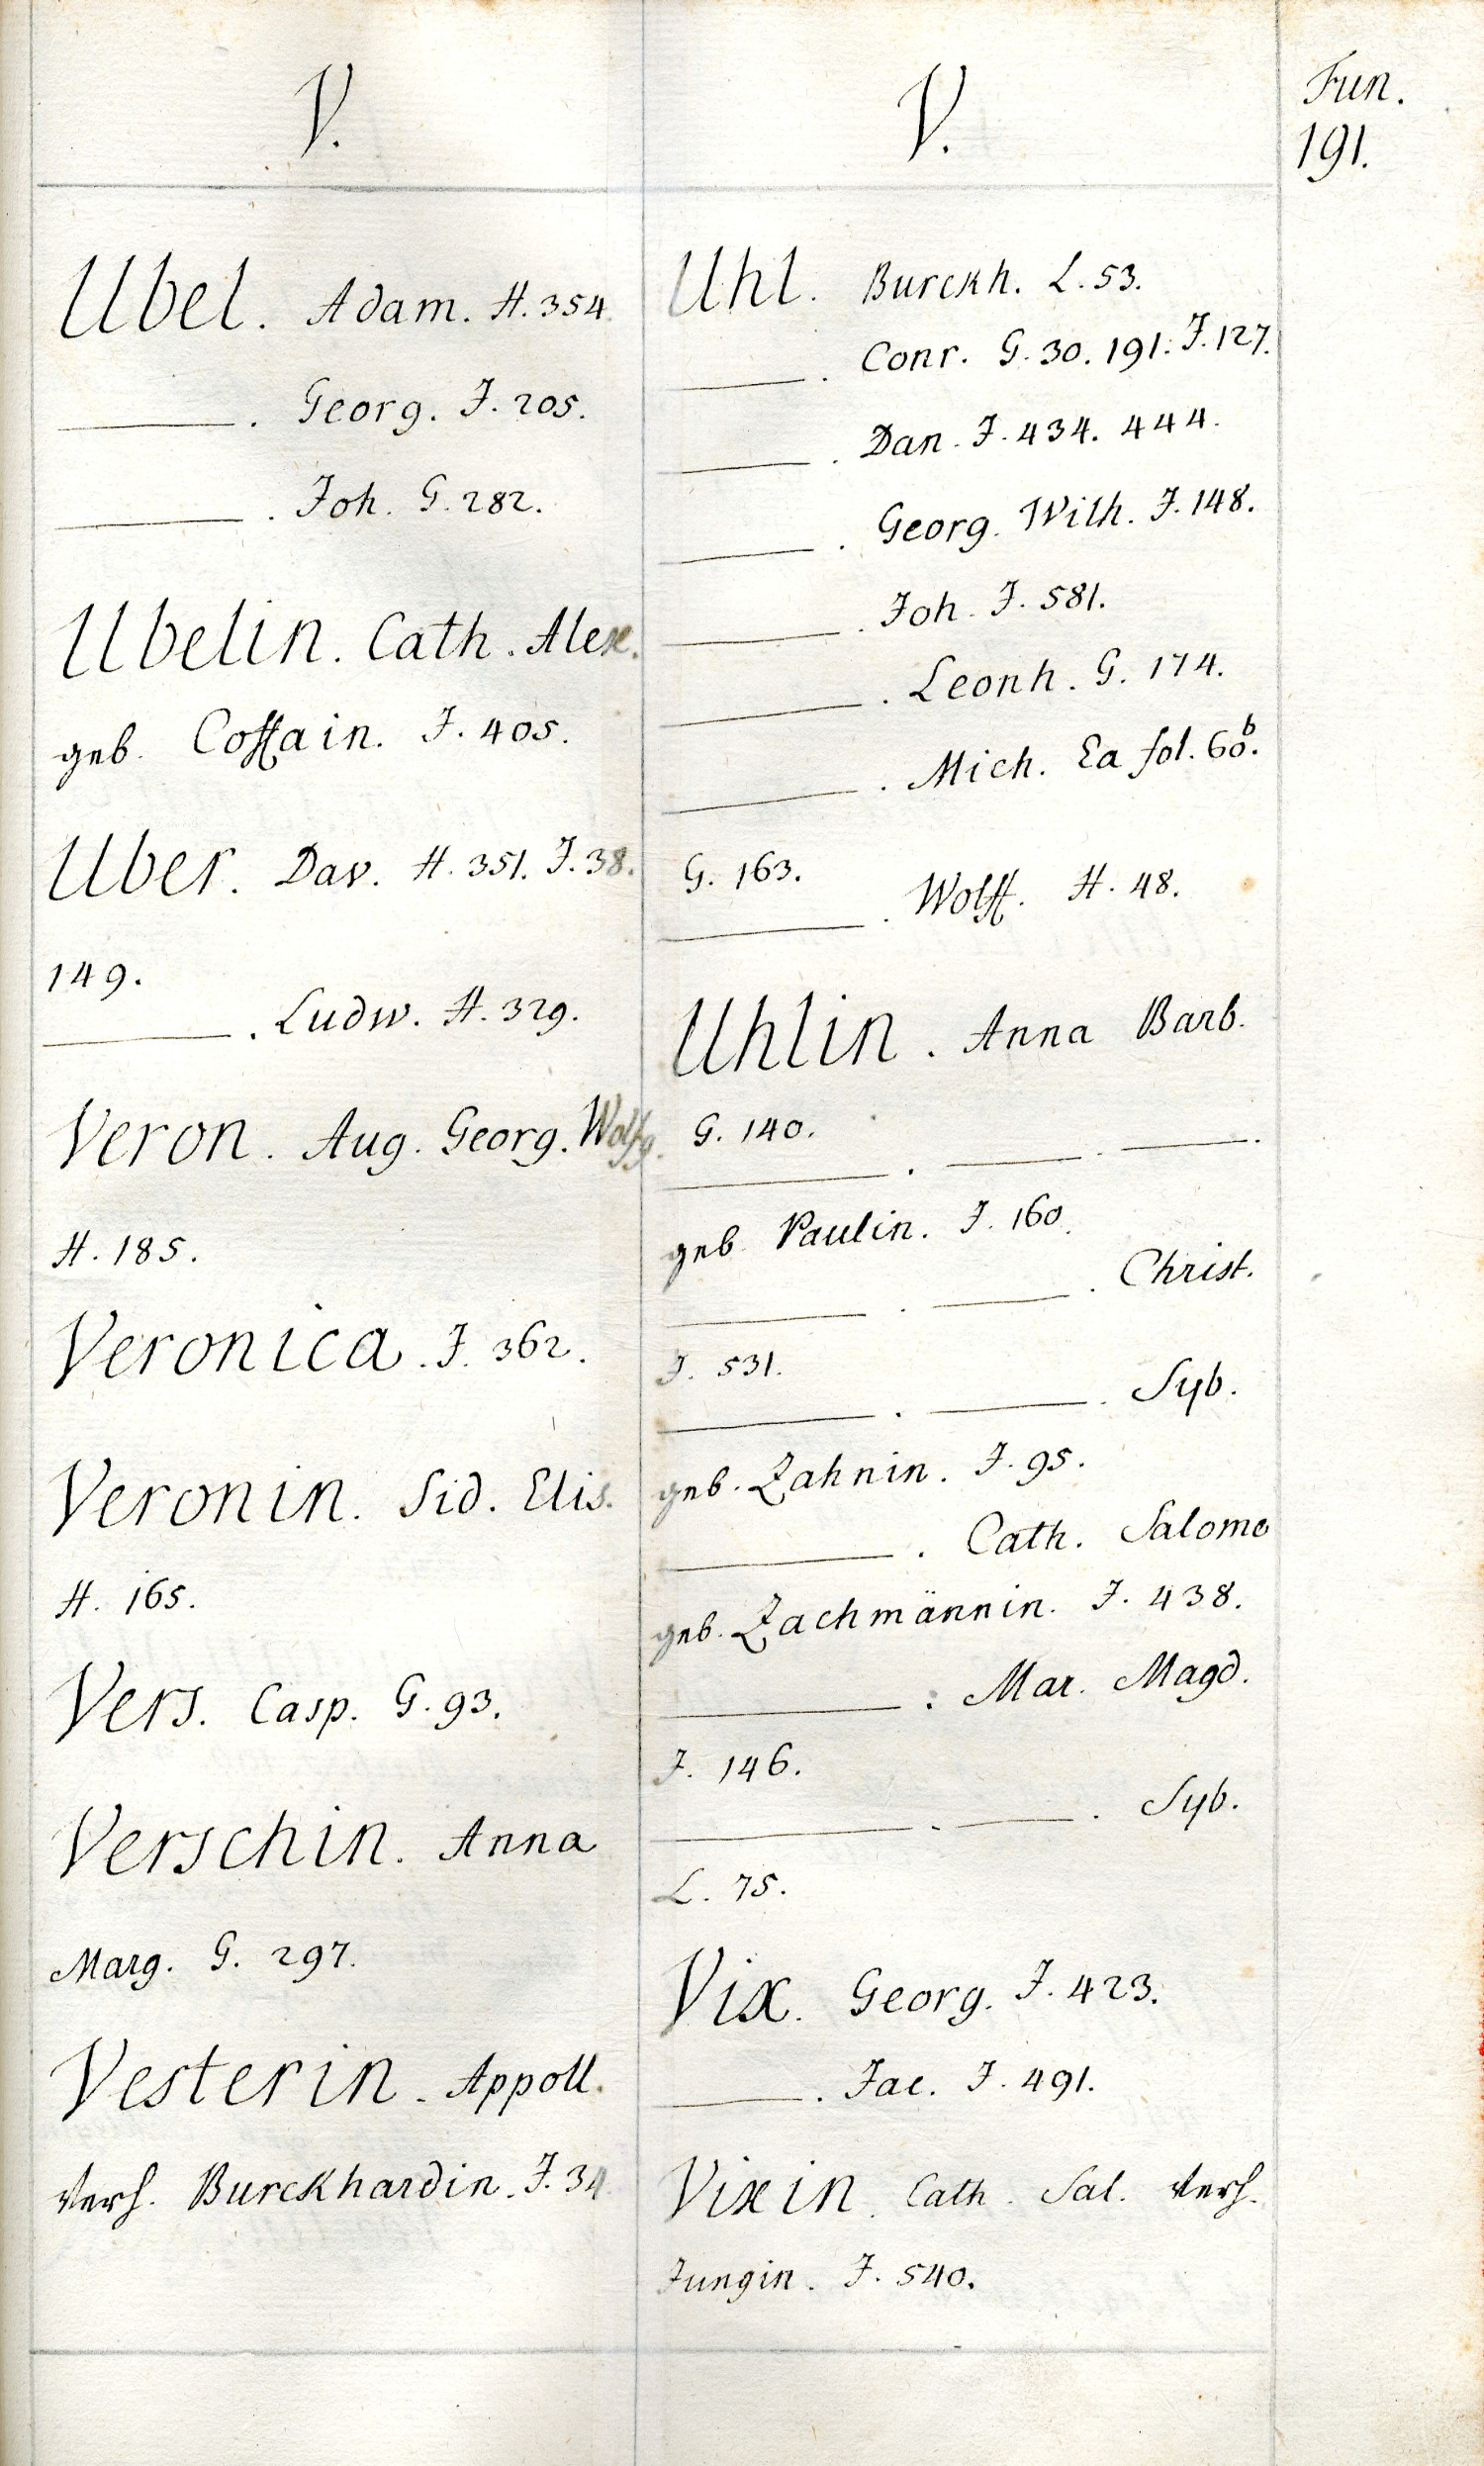 V.
Ubel. Adam. H. 354
———. Georg. J. 205.
———. Joh. G. 282.
Ubelin. Cath. Alex.
geb. Coffain. J. 405.
Uber. Dav. H. 351. J. 38.
149.
———. Ludw. H. 329.
Veron. Aug. Georg. Wolfg.
H. 185.
Veronica. J. 362.
Veronin. Sid. Elis.
H. 165.
Vers. Casp. G. 93.
Verschin. Anna
Marg. G. 297.
Vesterin. Appoll.
verh. Burckhardin. J. 34
V.
Uhl. Burckh. L. 53.
———. Conr. G. 30. 191. J. 127.
———. Dan. J. 434. 444.
———. Georg. Wilh. J. 148.
———. Joh. J. 581.
———. Leonh. G. 174.
———. Mich. Ea fol. 60b.
G. 163.
———. Wolff. H. 48.
Uhlin. Anna Barb.
G. 140.
———. ———. ———.
geb. Paulin. J. 160.
———. ———. Christ.
J. 531.
———. ———. Syb.
geb. Zahnin. J. 95.
———. Cath. Salome
geb. Zachmännin. J. 438.
———. Mar. Magd.
J. 146.
———. ———. Syb.
L. 75.
Vix. Georg. J. 423.
———. Jac. J. 491.
Vixin. Cath. Sal. verh.
Jungin. J. 540.
Fun.
191.